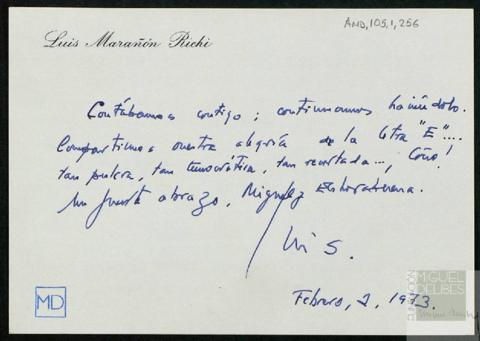 AMD, 105, 1, 256
Luis Marañón Richi
Contábamos contigo; continuamos haciéndolo.
Compartimos vuestra alegría de la letra "E"....
tan pulcra, tan democrática, tan recortada..., ¡Coño!
Un fuerte abrazo, Miguel y
Luis.
Febrero, 2, 1973.
MD
FUNDACIÓN
MIGUEL
DELIBES